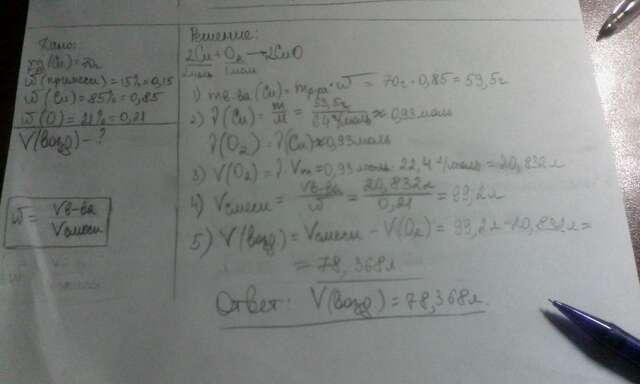 Дано:
m(Cu)=70г
ω(примеси)=15%=0,15
ω(Cu)=85%=0,85
ω(O)=21%=0,21
V(возд)-?
ω= Vв-ва
Vсмеси
Решение:
2Cu+O2→2CuO
2моль 1моль
1) mв-ва(Cu)= · ω = 70г·0,85=59,5г
2) ν(Cu)= m/M = 59,5г / 64г/моль ≈ 0,93моль
ν(O2)=ν(Cu)≈0,93моль
3) V(O2)=ν·Vm=0,93моль·22,4л/моль=20,832л
4) Vсмеси= Vв-ва/ω = 20,832л/0,21 =99,2л
5) V(возд)=Vсмеси-V(O2)=99,2л-20,832л=
=78,368л
Ответ: V(возд)=78,368л.